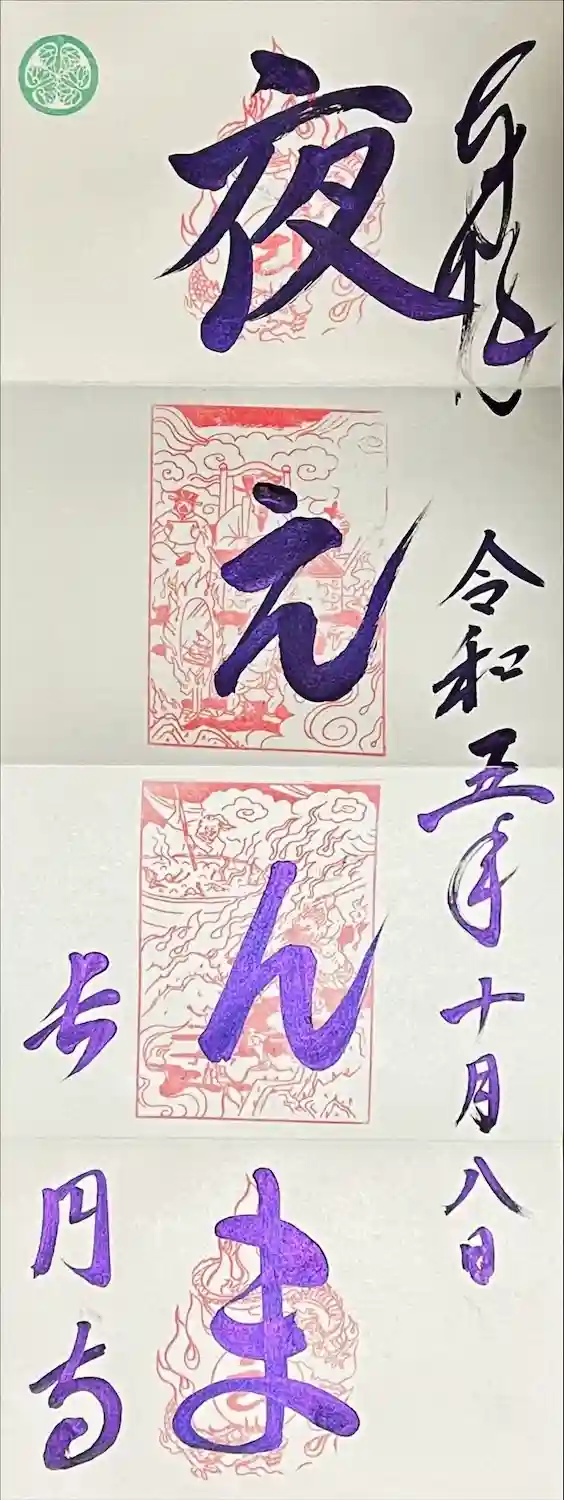 奉拝
令和五年十月八日
夜えんま
長円寺